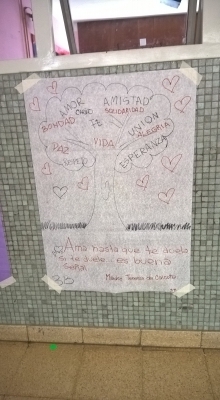 AMOR AMISTAD
BONDAD SOLIDARIDAD
FE UNION
ALEGRIA
PAZ VIDA
ESPERANZA
Ama hasta que te duela
si te duele es buena
señal
Madre Teresa de Calcuta